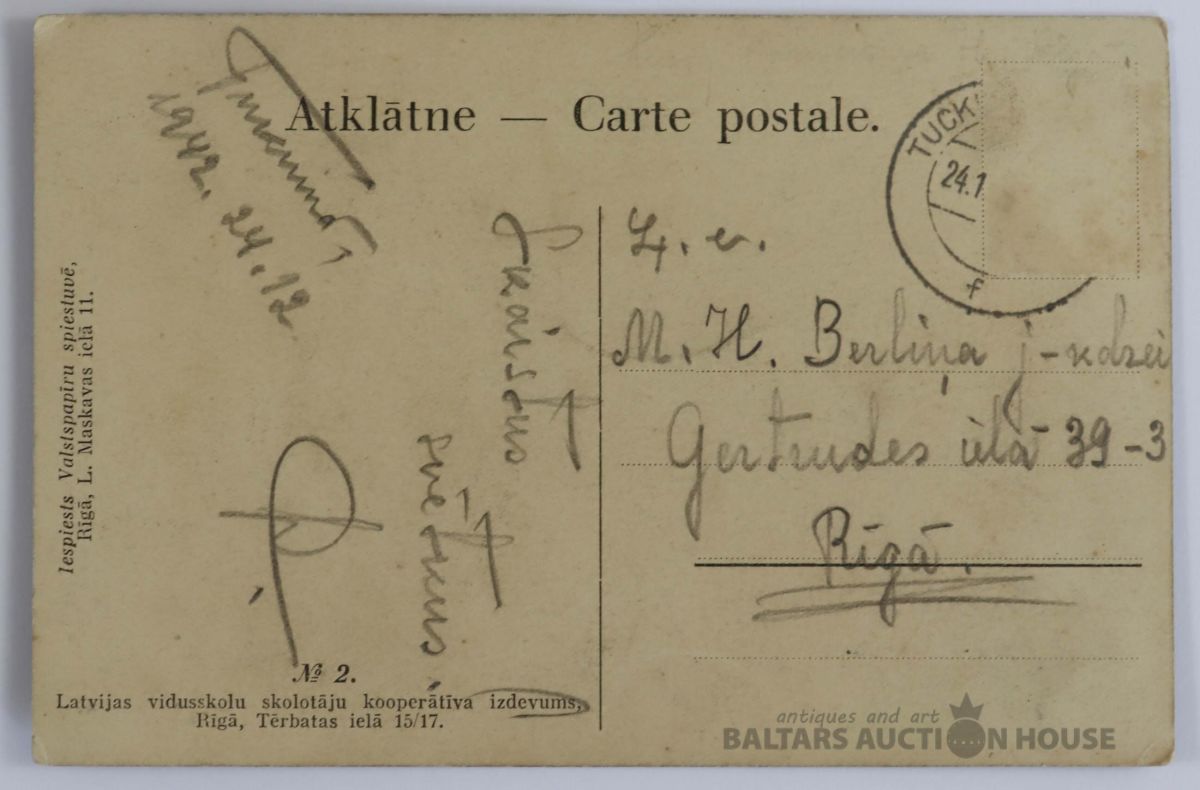 Atklātne — Carte postale.
Tukumā,
1942. 24.12
Skaistus
svētkus.
TUCK
24.1
f
Ļ. c.
M. H. Berliņa j-kdzei
Gertrudes ielā 39-3
Rīgā.
Iespiests Valstspapīru spiestuvē,
Rīgā, L. Maskavas ielā 11.
№ 2.
Latvijas vidusskolu skolotāju kooperātīva izdevums,
Rīgā, Tērbatas ielā 15/17.
antiques and art
BALTARS AUCTION HOUSE